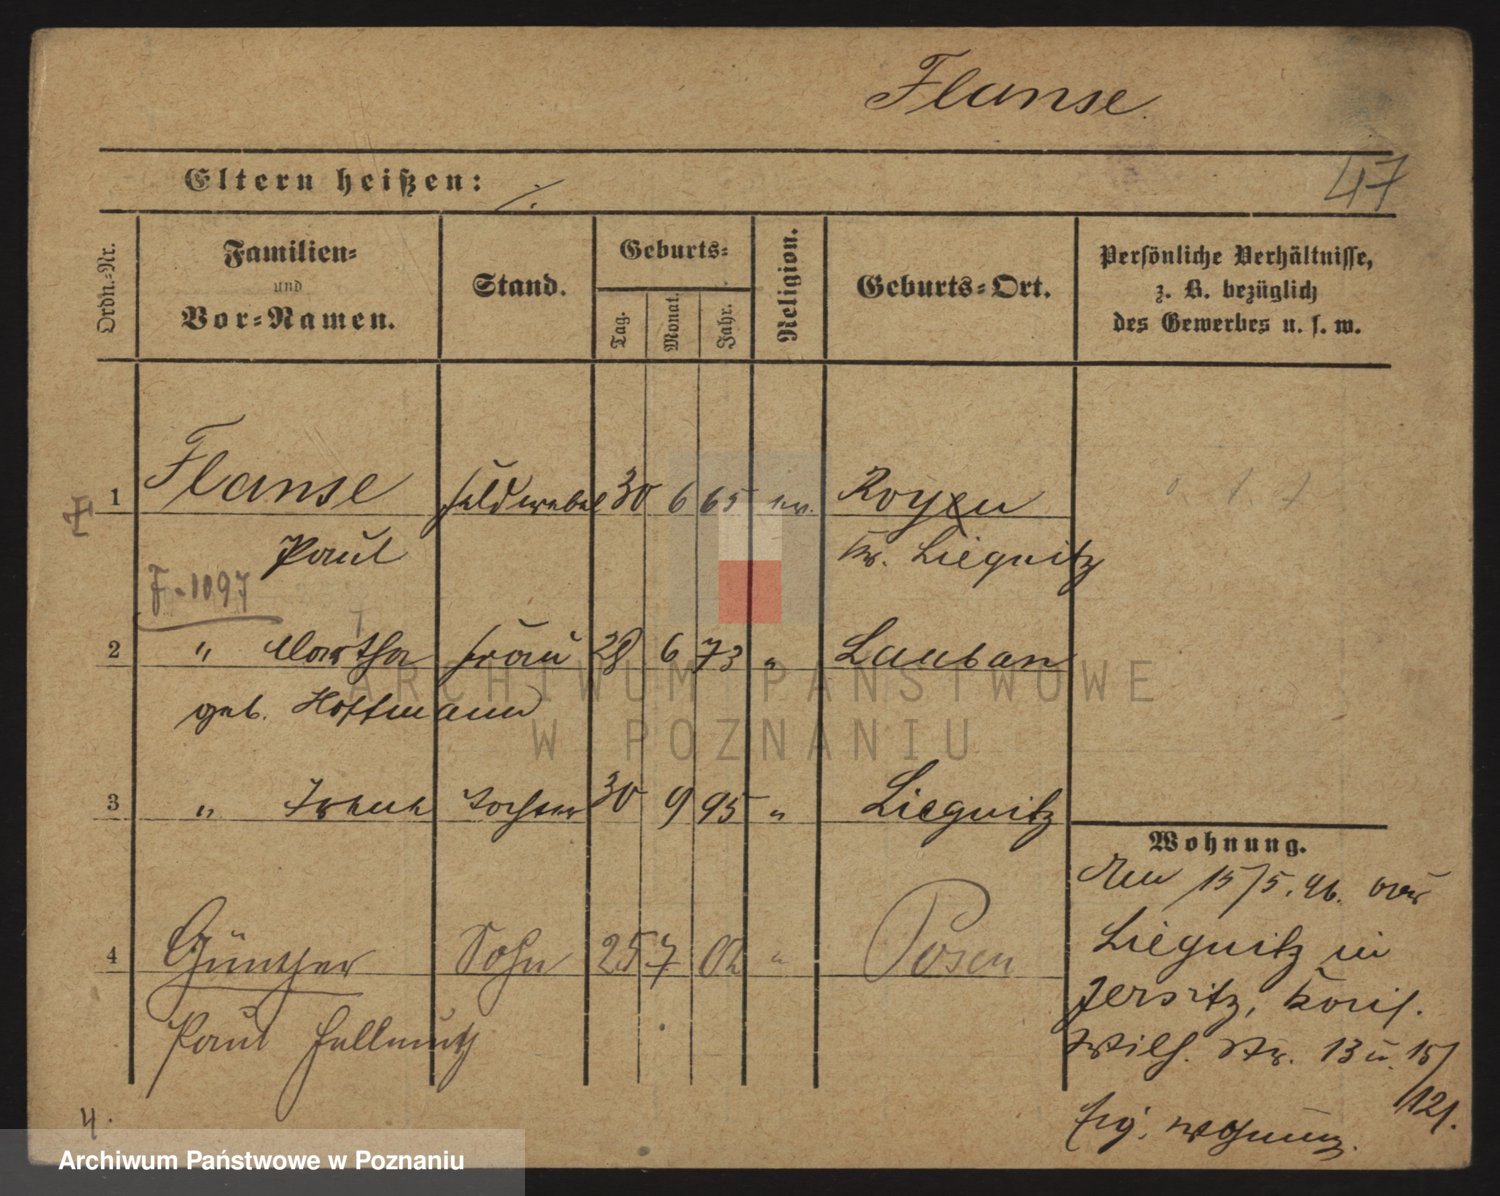 Flanse.
Eltern heißen: ./.
47
Ordn.-Nr.
Familien-
und
Vor-Namen.
Stand.
Geburts-
Tag.
Monat.
Jahr.
Religion.
Geburts-Ort.
Persönliche Verhältnisse,
z. B. bezüglich
des Gewerbes u. s. w.
1 Flanse Feldwebel 30 6 65 ev. Royn
Paul Kr. Liegnitz
F-1097
2 " Martha Frau 28 6 73 " Lauban
geb. Hoffmann
3 " Irene Tochter 30 9 95 " Liegnitz
4 Günther Sohn 25 7 02 " Posen
Paul Hellmuth
Wohnung.
15/5. 96. aus
Liegnitz in
Jersitz,
Wilh. Str. 13 u. 15/
/121.
Wohnung.
4.
ARCHIWUM PAŃSTWOWE
W POZNANIU
Archiwum Państwowe w Poznaniu